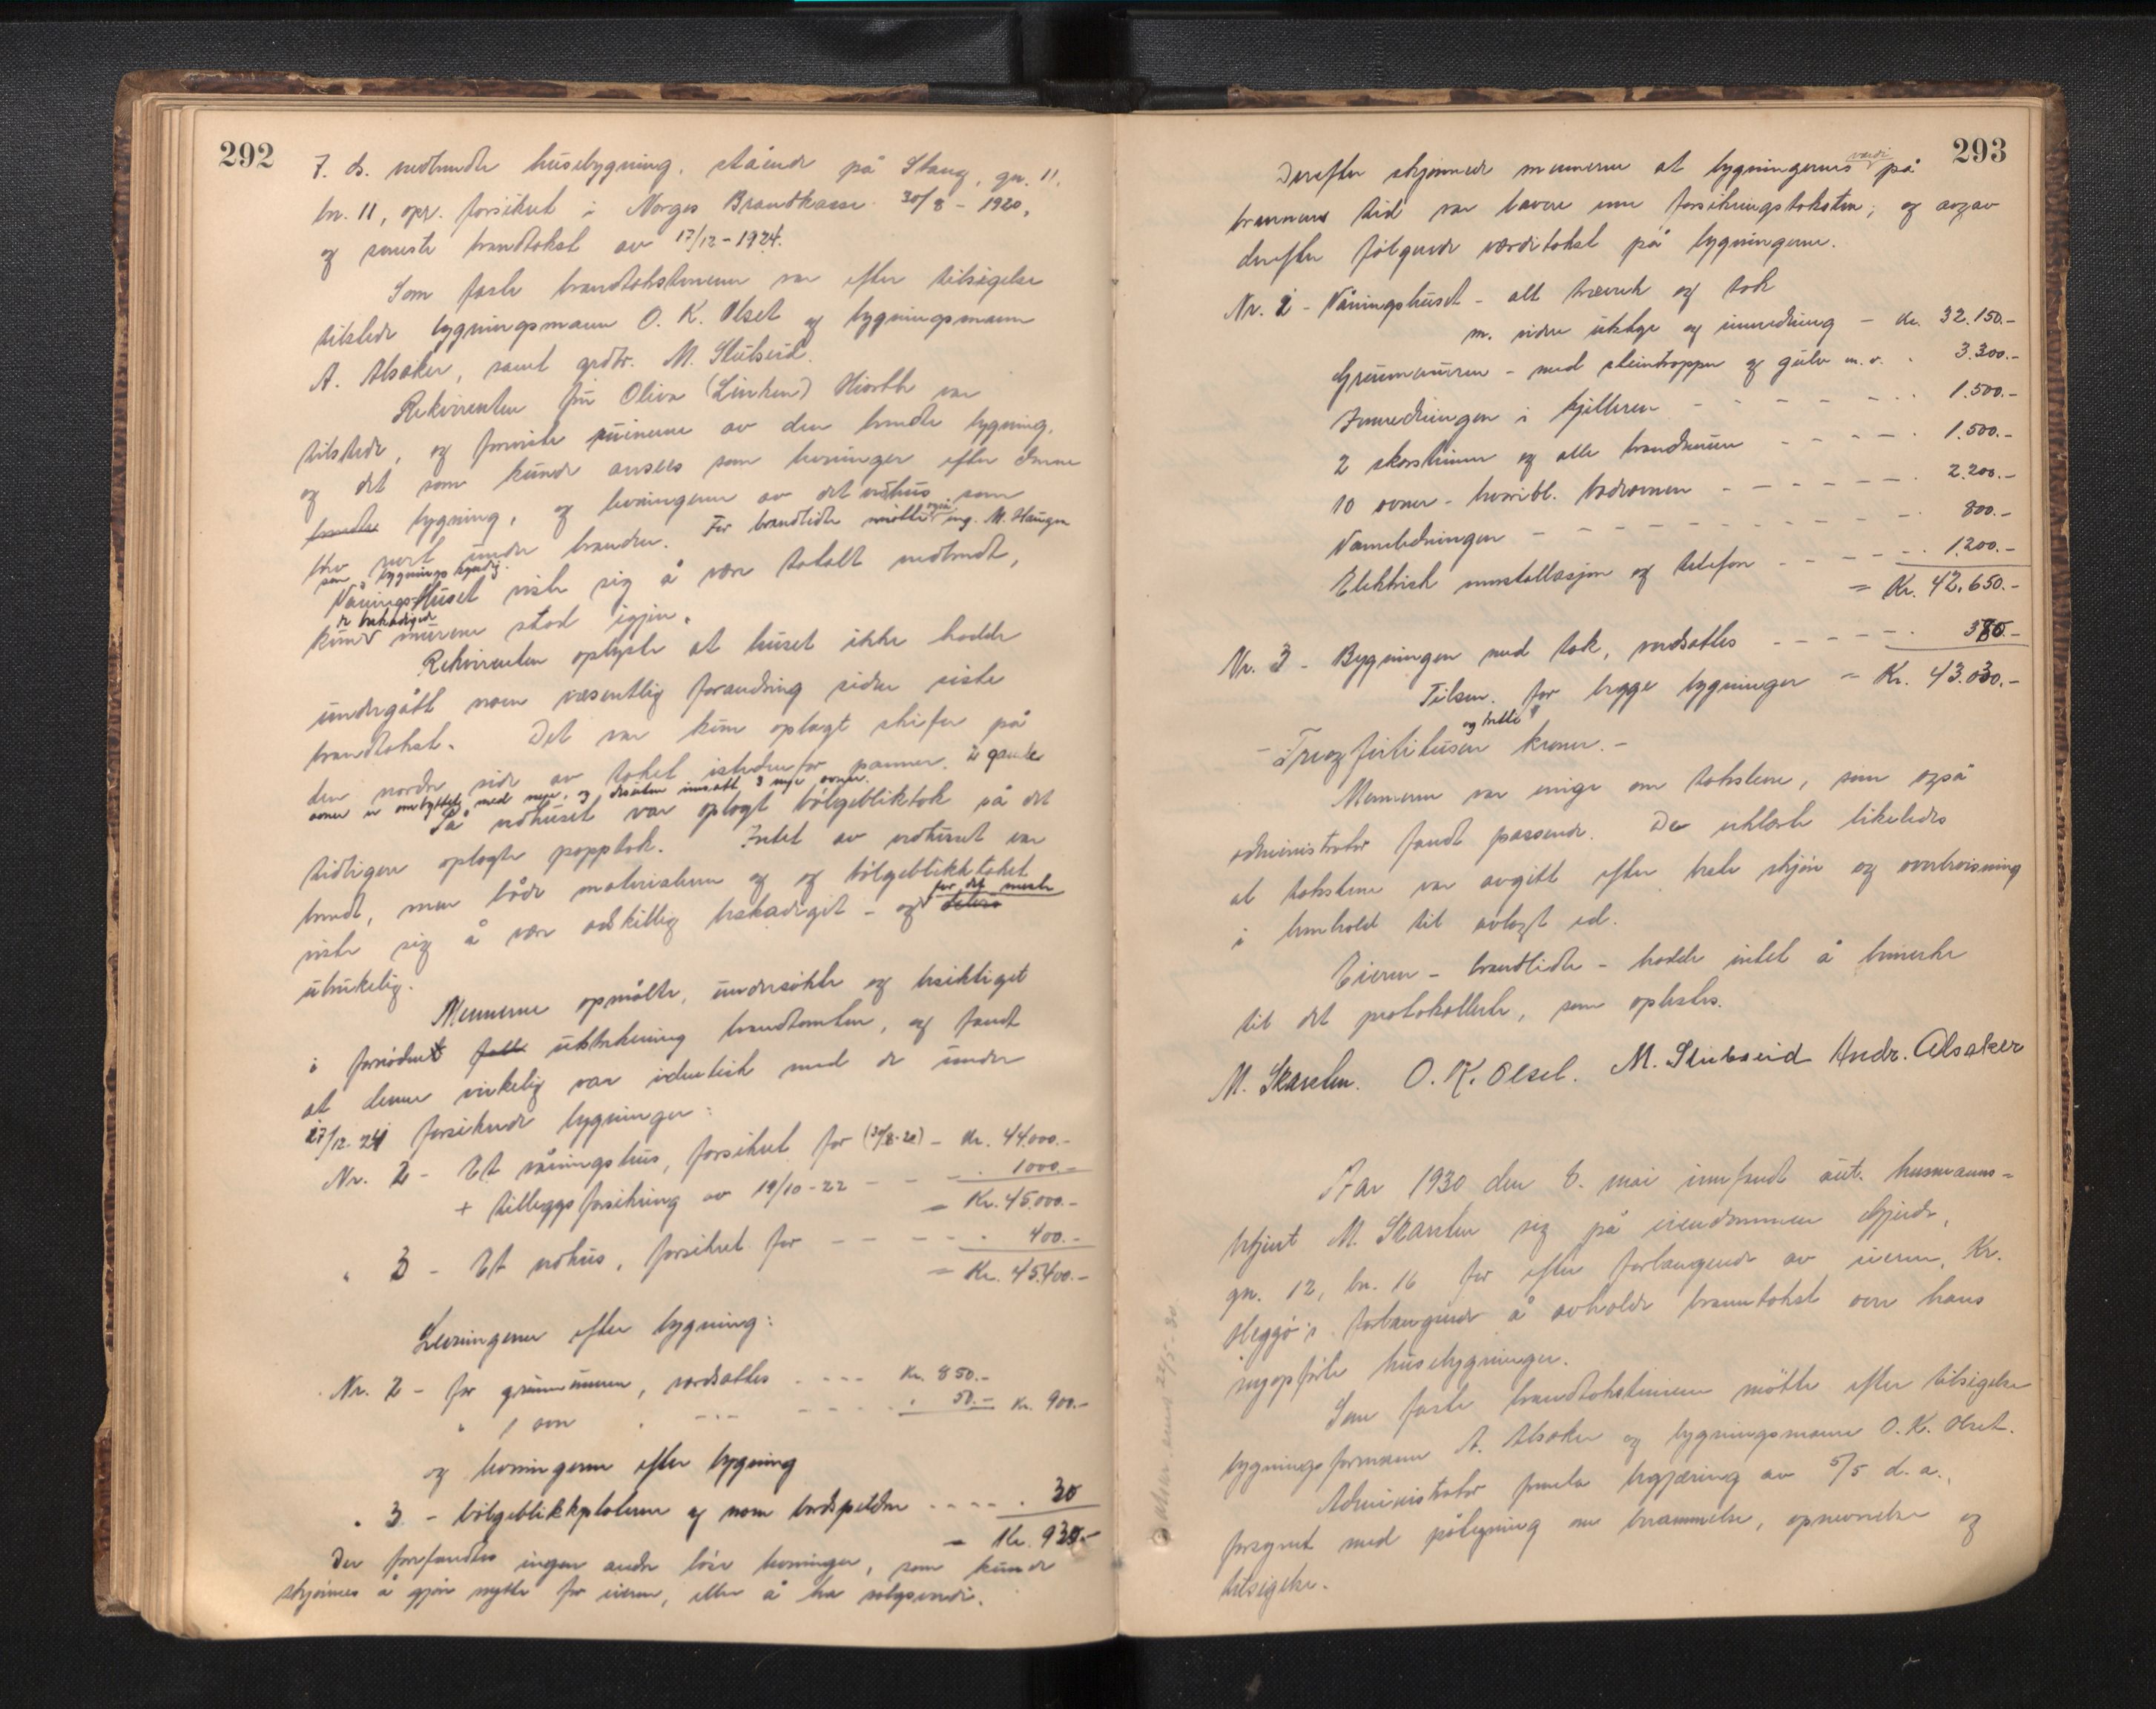 292
7. ds. nedbrendte husebygning, stående på Stang, gn. 11,
bn. 11, opr. forsikret i Norges Brandkasse 30/8 - 1920,
og seneste brandtakst av 17/12 - 1924.
Som faste brandtakstmenn var efter tilsigelse
tilstede bygningsmann O. K. Olset og bygningsmann
A. Alsaker, samt grdbr. M. Stubseid.
Rekvirenten fru Oliva (Linken) Hiorth var
tilstede, og forviste ruinerne av den brendte bygning,
og det som kunde ansees som levninger efter denne
brendte bygning, og levningerne av det udhus som
blev revet under branden. For brandlidte møtte også ing. M. Haugen
som bygningskyndig.
Våningshuset viste sig å være totalt nedbrendt,
kund de beskadigede murene stod igjen.
Rekvirenten oplyste at huset ikke hadde
undergått noen væsentlig forandring siden siste
brandtakst. Det var kun oplagt skifer på
den nordre side av taket istedenfor panner. 2 gamle
ovner er ombyttet med nye, og desuten innsatt 3 nye ovner.
På udhuset var oplagt bølgebliktak på det
tidligere oplagte papptak. Intet av udhuset var
brendt, men både materialerne og og bølgeblikktaket
viste sig å være adskillig beskadiget - og for det meste delvis
ubrukelig.
Mennerne opmålte, undersøkte og besiktiget
i fornøden fall utstrekning brandtomten, og fandt
at denne virkelig var identisk med de under
17/12-24 forsikrede bygninger:
Nr. 2 - Et våningshus, forsikret for (30/8-20) - Kr. 44.000.-
+ tilleggsforsikring av 19/10-22 - - - 1000.-
= Kr. 45.000.-
" 3 - Et udhus, forsikret for - - - - - 400.-
= Kr. 45.400.-
Levningerne efter bygning:
Nr. 2 - for grunnmuren, verdsattes . - - - Kr. 850.-
" 1 ovn " - - - - - - - " 50.- Kr. 900.-
og levningerne efter bygning
" 3 - bølgeblikkplaterne og noen bordspilder - - - - . 30
= Kr. 930.-
Der forefandtes ingen andre løse levninger, som kunde
skjønnes å gjøre nytte for eieren, eller å ha salgsverdi.
293
Derefter skjønnede mennerne at bygningernes verdi på
brannens tid var lavere enn forsikringstaksten; og avgav
derefter følgende værditakst på bygningerne.
Nr. 2 - Våningshuset - alt treverk og tak
m. videre utstyr og innredning - Kr. 32.150.-
Grunnmuren - med steintrapper og gulv m.v. . 3.300.-
Innredningen i kjelleren - - - - - - . . 1.500.-
2 skorstener og alle brandmure - - - - . 1.500.-
10 ovner - hvoribl. badeovnen - - - - - - . 2.200.-
Vannledningen - - - - - - - - - - - . 800.-
Elektrisk innstallasjon og telefon - - - - . . 1.200.-
= Kr. 42.650.-
Nr. 3 - Bygningen med tak, verdsattes - - - - - . 380.-
Tilsm. for begge bygninger = Kr. 43.030.-
- Treogfirtitusen og tretti kroner. -
Mennerne var enige om takstene, som også
administrator fandt passende. De erklærte likeledes
at takstene var avgitt efter beste skjøn og overbevisning
i henhold til avlagt ed.
Eieren - brandlidte - hadde intet å bemerke
til det protokollerte, som oplæstes.
M. Skarsten. O. K. Olset. M. Stubseid Andr. Alsaker
Aar 1930 den 8. mai innfandt aut. husmanns-
bestyrer M. Skarsten sig på eiendommen Gjerde,
gn. 12, bn. 16 for efter forlangende av eieren, Kr.
Heggø's forlangende å avholde branntakst over hans
nyopførte husebygninger.
Som faste brandtakstmenn møtte efter tilsigelse
bygningsformann A. Alsaker og bygningsmann O. K. Olset.
Administrator fremla begjæring av 5/5 d. a.,
forsynt med påtegning om berammelse, opnevnelse og
tilsigelse.